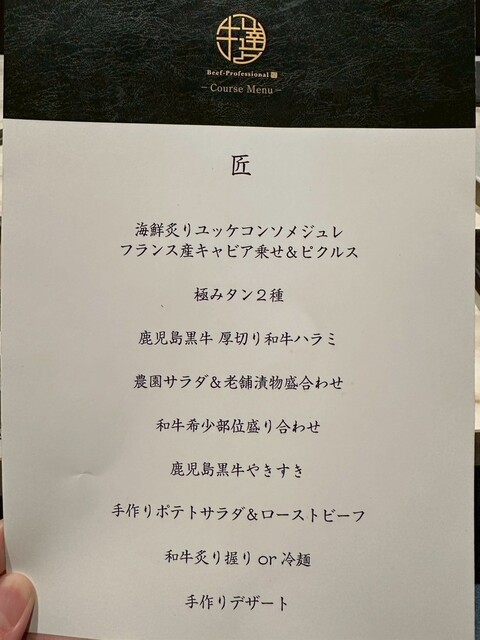 牛達
Beef-Professional
– Course Menu –
匠
海鮮炙りユッケコンソメジュレ
フランス産キャビア乗せ＆ピクルス
極みタン２種
鹿児島黒牛 厚切り和牛ハラミ
農園サラダ＆老舗漬物盛合わせ
和牛希少部位盛り合わせ
鹿児島黒牛やきすき
手作りポテトサラダ＆ローストビーフ
和牛炙り握り or 冷麺
手作りデザート